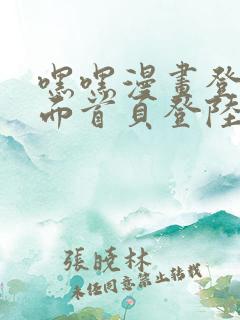 嘿嘿漫畫登
而首頁登陸
張曉林
未經同意禁止轉載